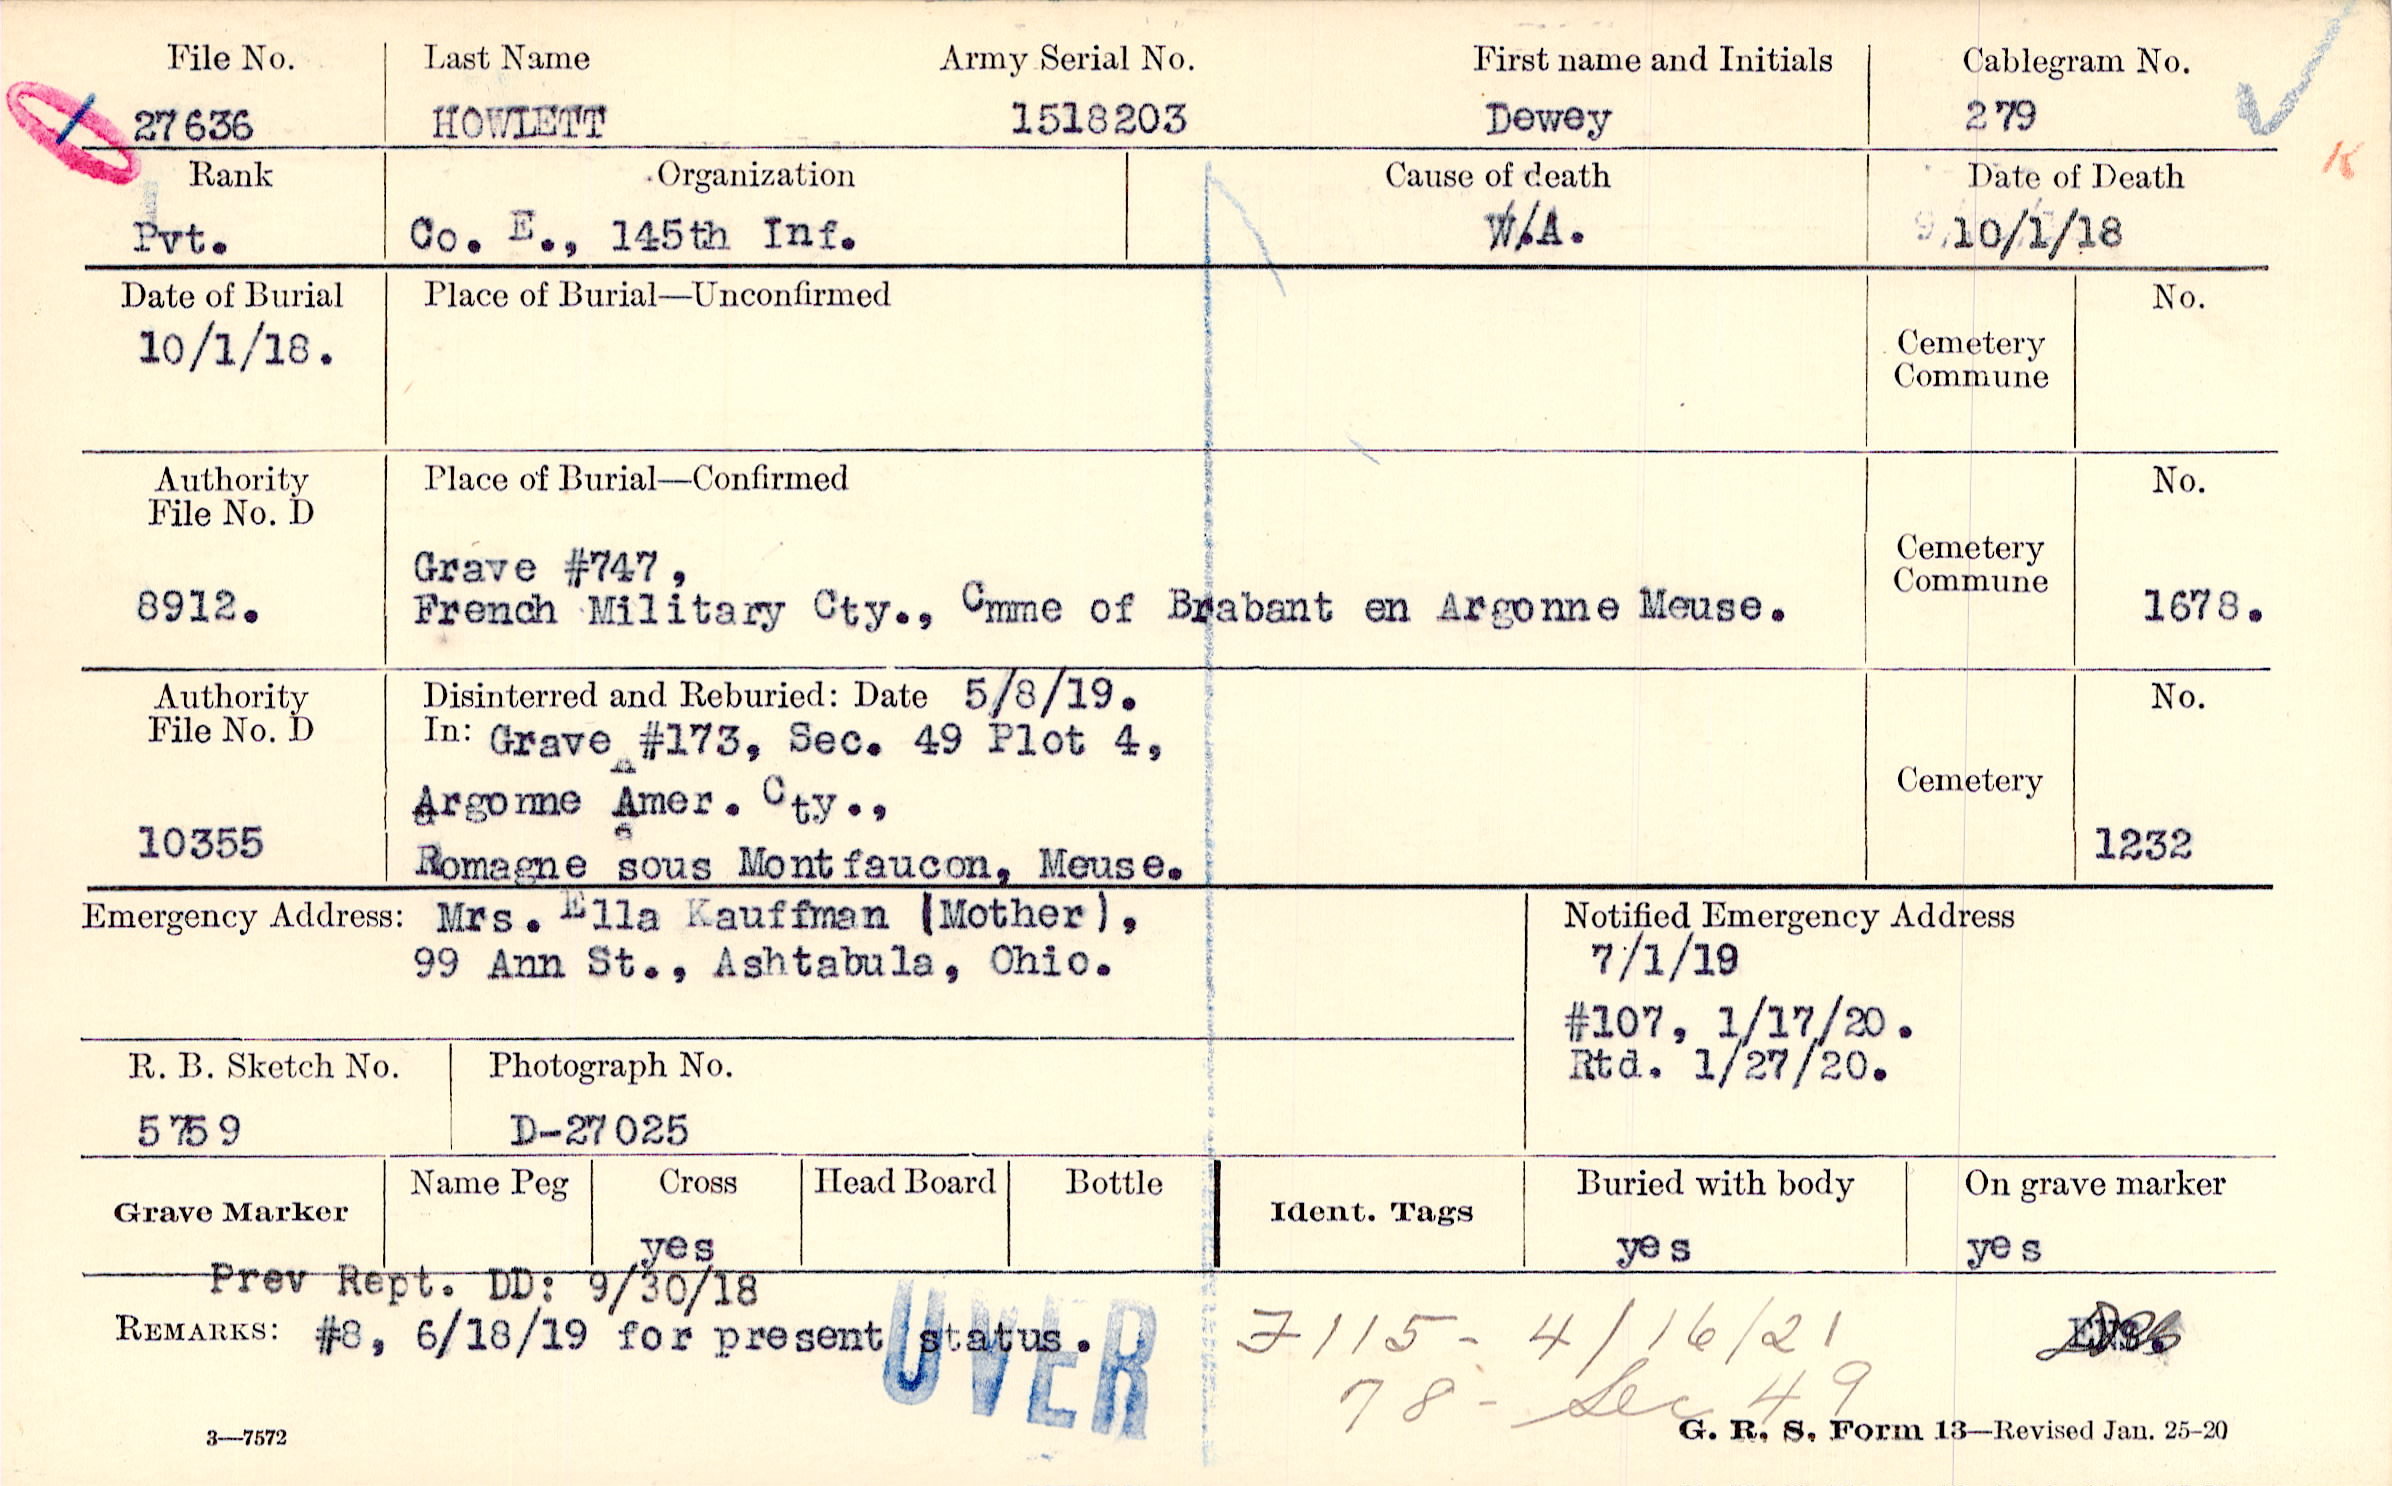 File No. Last Name Army Serial No. First name and Initials Cablegram No.
27636 HOWLETT 1518203 Dewey 279
K
Rank Organization Cause of death Date of Death
Pvt. Co. E., 145th Inf. W/A. 10/1/18
Date of Burial Place of Burial—Unconfirmed No.
10/1/18.
Cemetery
Commune
Authority Place of Burial—Confirmed No.
File No. D
Grave #747,
Cemetery
Commune
8912. French Military Cty., Cmme of Brabant en Argonne Meuse. 1678.
Authority Disinterred and Reburied: Date 5/8/19. No.
File No. D In: Grave #173, Sec. 49 Plot 4,
Argonne Amer. Cty., Cemetery
10355 Romagne sous Montfaucon, Meuse. 1232
Emergency Address: Mrs. Ella Kauffman (Mother), Notified Emergency Address
99 Ann St., Ashtabula, Ohio. 7/1/19
#107, 1/17/20.
Rtd. 1/27/20.
R. B. Sketch No. Photograph No.
5759 D-27025
Grave Marker Name Peg Cross Head Board Bottle Ident. Tags Buried with body On grave marker
yes yes yes
Prev Rept. DD: 9/30/18
REMARKS: #8, 6/18/19 for present status. 7115 - 4/16/21
OVER
78 - Sec 49
3—7572 G. R. S. Form 13—Revised Jan. 25-20